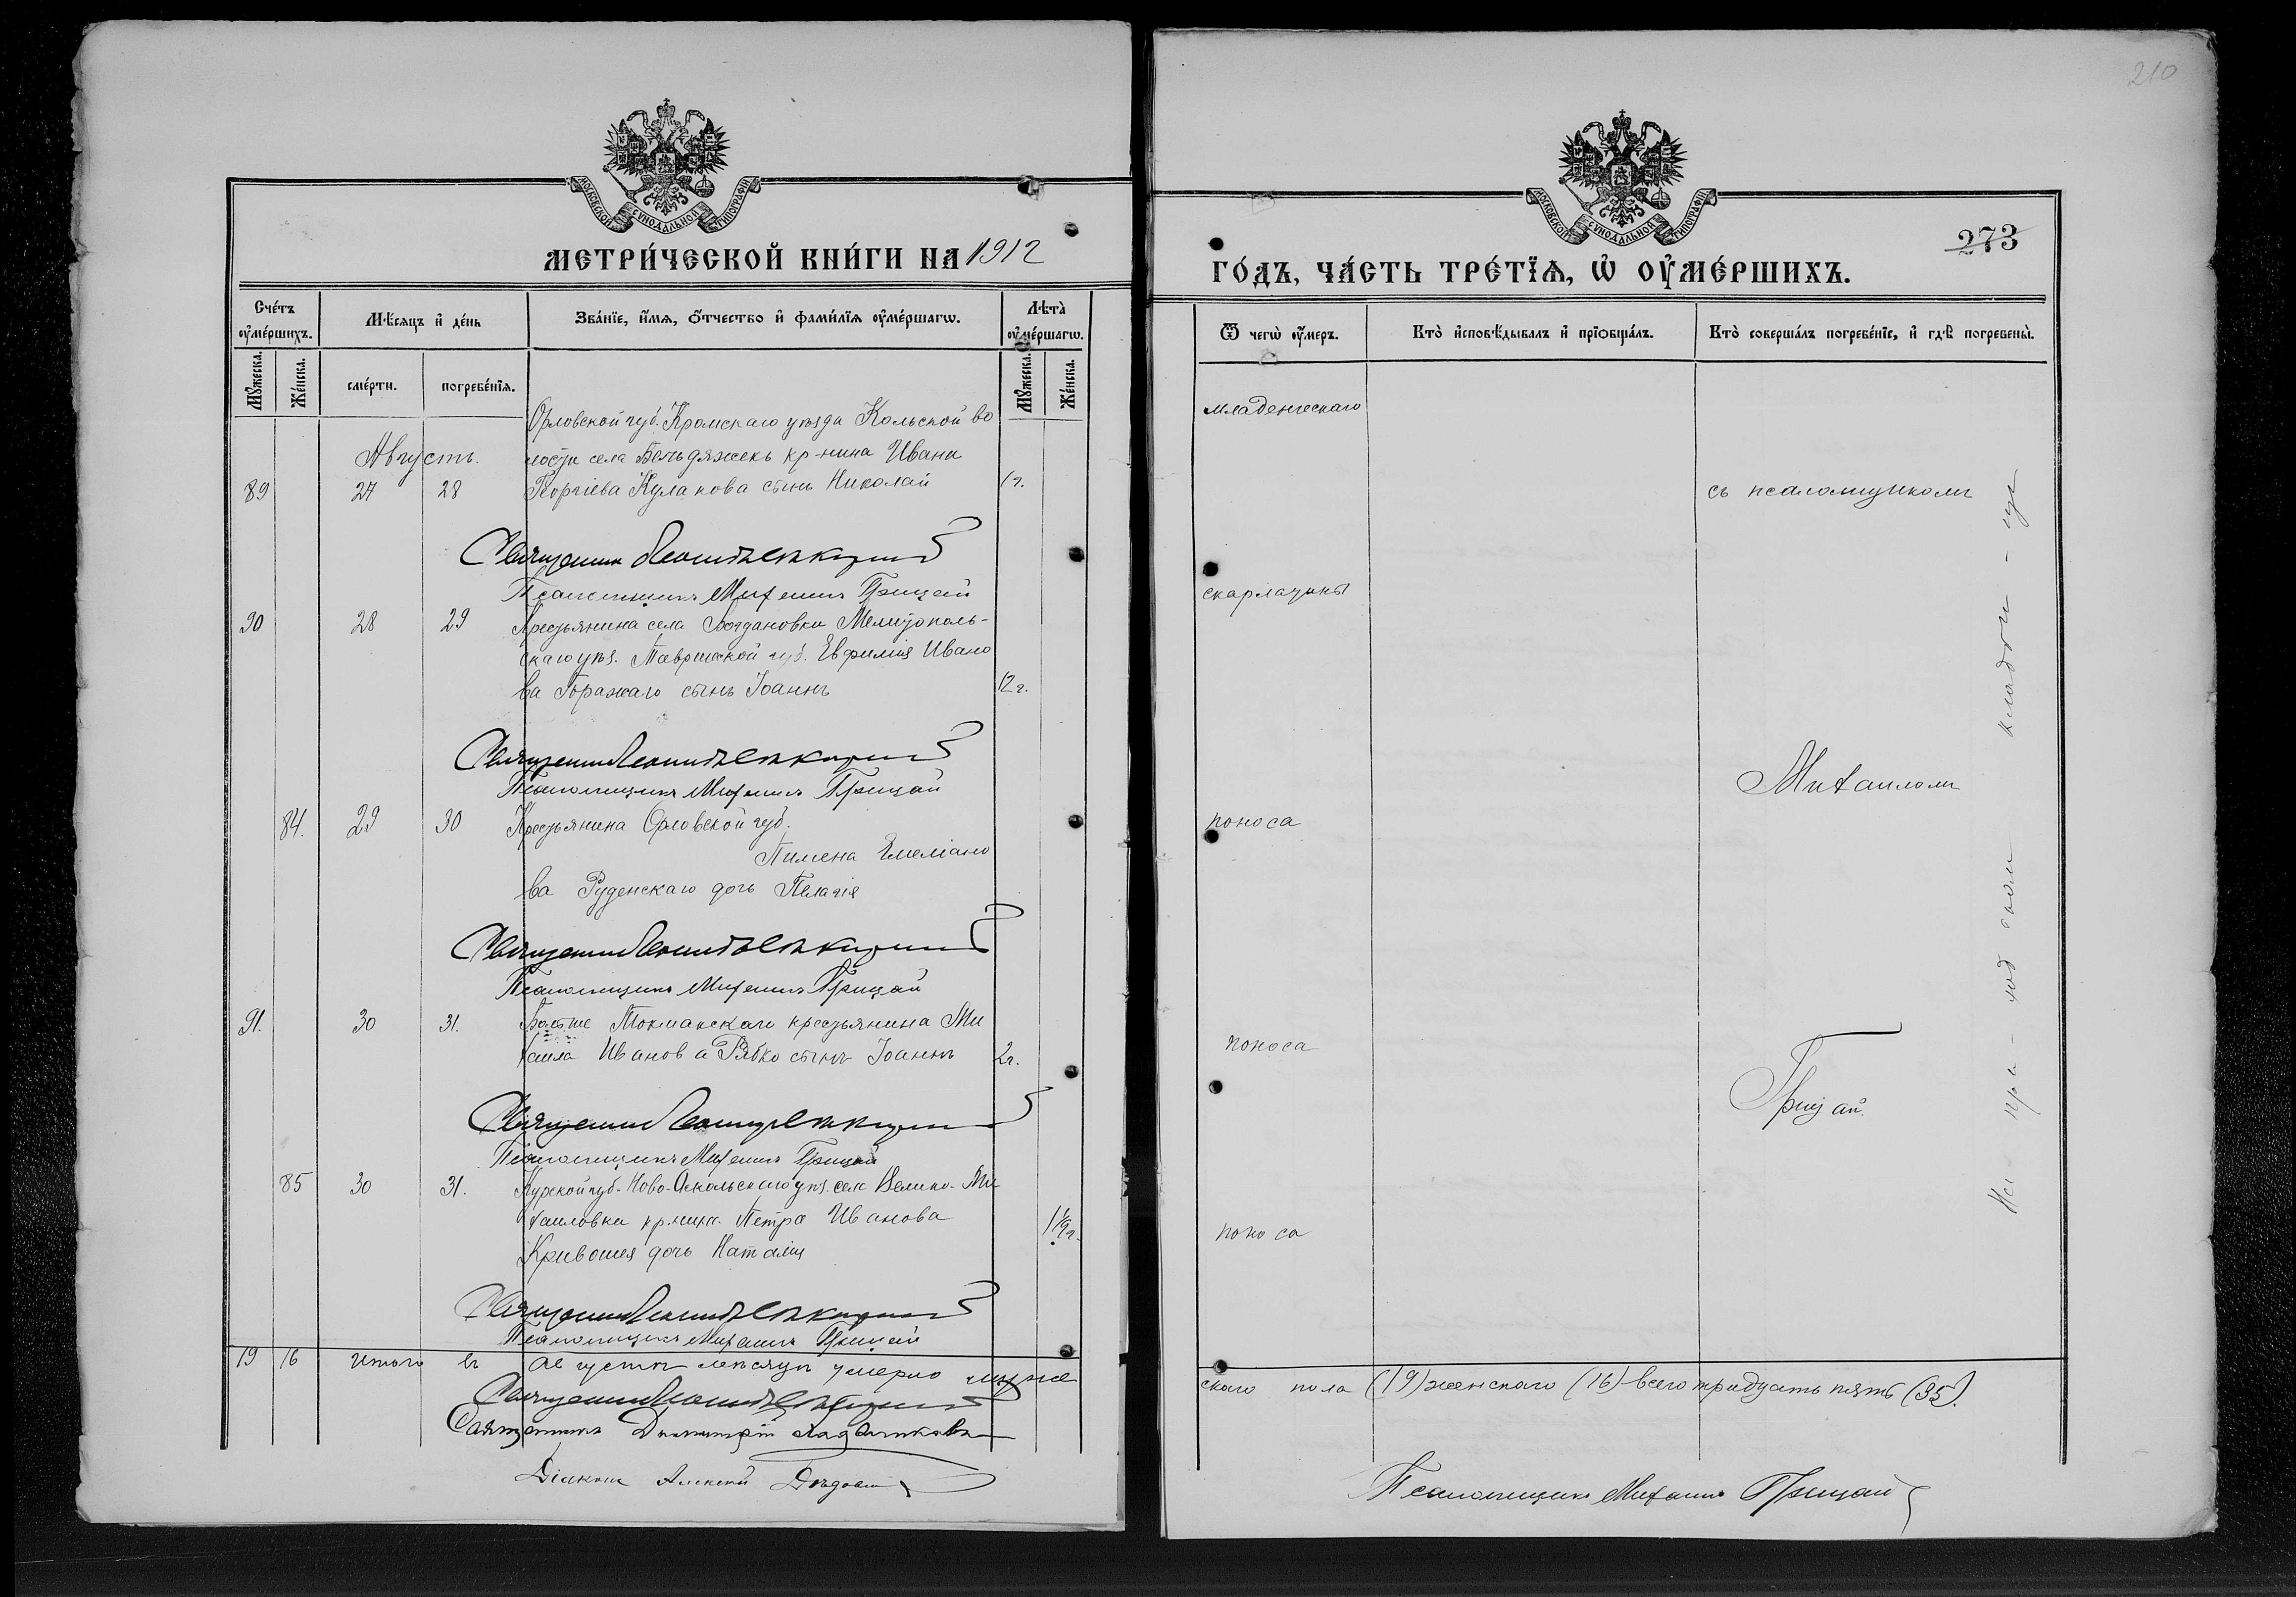 210
МОСКОВСКОЙ СѴНОДАЛЬНОЙ ТИПОГРАФІИ
МЕТРИ́ЧЕСКОЙ КНИ́ГИ НА 1912
Сче́тъ ᲂу҆ме́ршихъ.
Мꙋ́жеска.
Же́нска.
Мѣ́сяцъ и҆ де́нь
сме́рти.
погребе́нїѧ.
Зва́нїе, и҆́мѧ, ѻ҆́тчество и҆ фами́лїѧ ᲂу҆ме́ршагѡ.
Лѣ̀та ᲂу҆ме́ршагѡ.
Мꙋ́жеска.
Же́нска.
Орловской губ. Кромскаго уѣзда Кольской во
Августъ. лости села Бельдяжекъ кр-нина Ивана
89 27 28 Георгіева Кулакова сынъ Николай 1 г.
Священникъ
Псаломщикъ Михаилъ Грицай
90 28 29 Крестьянина села Богдановки Мелитополь-
скаго уѣз. Таврической губ. Евфимія Ивано
ва Горажаго сынъ Іоаннъ 12 г.
Священникъ
Псаломщикъ Михаилъ Грицай
84. 29 30 Крестьянина Орловской губ.
Пимена Емеліано
ва Руденскаго дочь Пелагія
Священникъ
Псаломщикъ Михаилъ Грицай
91. 30 31. Больше Токмакскаго крестьянина Ми
хаила Иванова Рябко сынъ Іоаннъ 2 г.
Священникъ
Псаломщикъ Михаилъ Грицай
85 30 31. Курской губ. Ново-Оскольскаго уѣз. села Велико-Ми
хаиловки кр-нина Петра Иванова 1 1/2 г.
Кривошея дочь Наталія
Священникъ
Псаломщикъ Михаилъ Грицай
19 16 Итого въ Августѣ мѣсяцѣ умерло муже
Священникъ
Священникъ Димитрій
Діаконъ Алексѣй
МОСКОВСКОЙ СѴНОДАЛЬНОЙ ТИПОГРАФІИ
273
ГО́ДЪ, ЧА́СТЬ ТРЕ́ТЇѦ, Ѽ ОУ҆МЕ́РШИХЪ.
Ѿ чегѡ̀ ᲂу҆́меръ.
Кто̀ и҆сповѣ́дывалъ и҆ прїѡбща́лъ.
Кто̀ соверша́лъ погребе́нїе, и҆ гдѣ̀ погребены̀.
младенческаго
съ псаломщикомъ
скарлатины
Михаиломъ
поноса
поноса
Грицай.
поноса
скаго пола (19) женскаго (16) всего тридцать пять (35).
Псаломщикъ Михаилъ Грицай